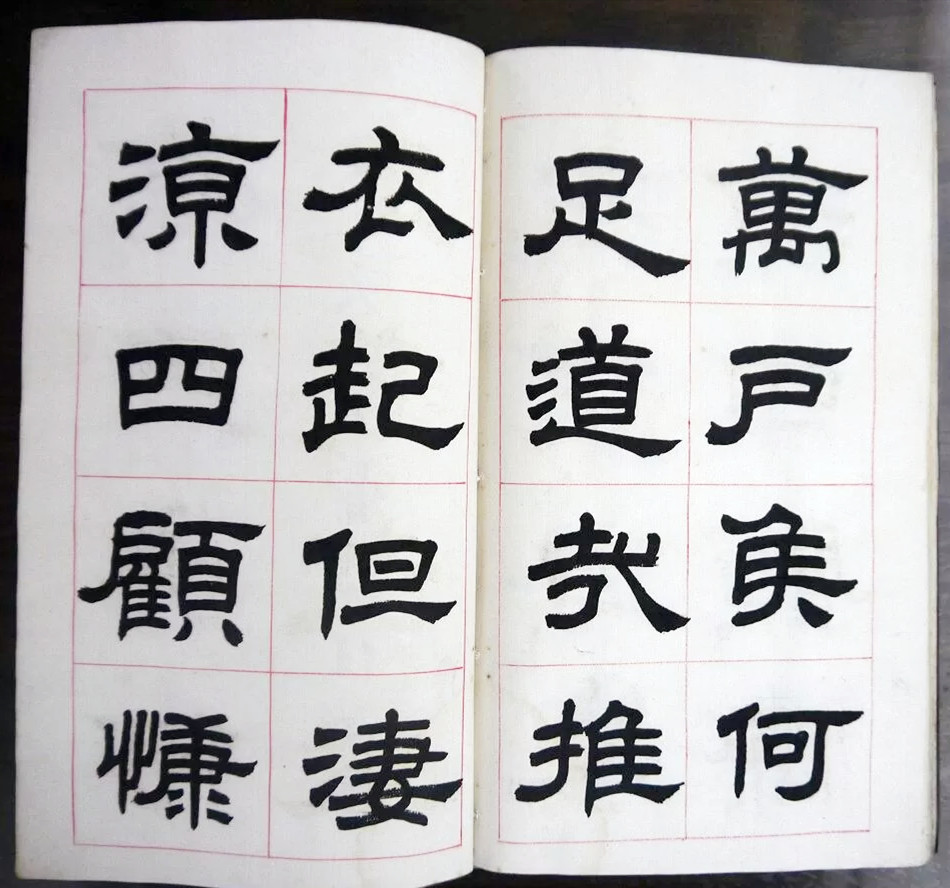 萬戸矦何
足道哉推
衣起但淒
涼四顧慷